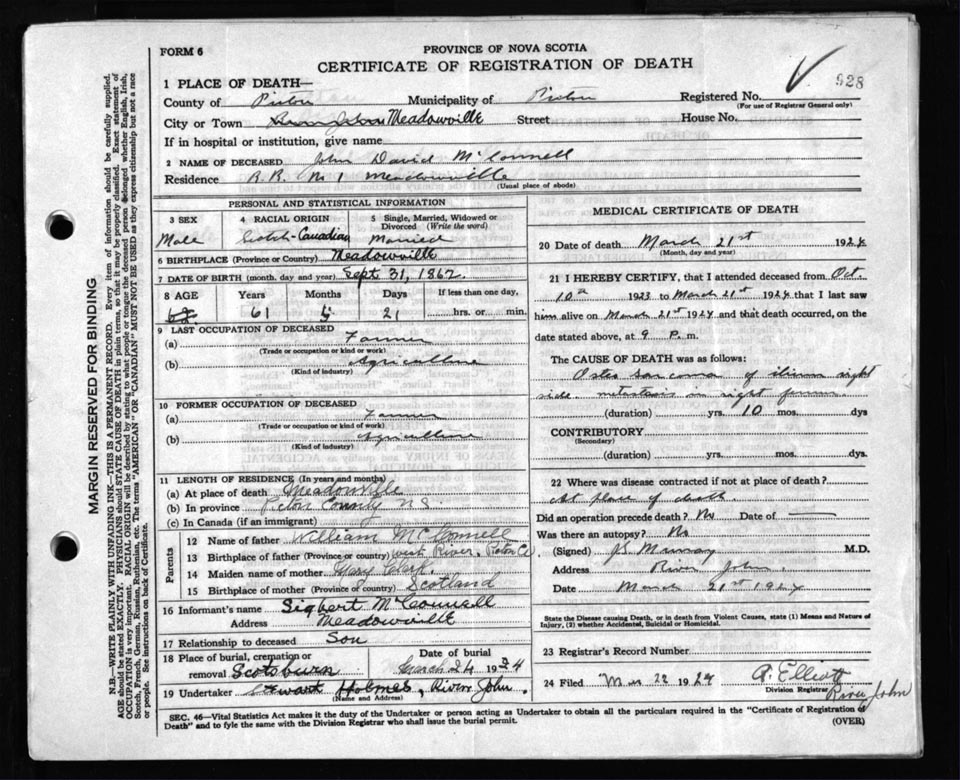 FORM 6
PROVINCE OF NOVA SCOTIA
CERTIFICATE OF REGISTRATION OF DEATH
928
1 PLACE OF DEATH—
County of Pictou Municipality of Pictou Registered No.
(For use of Registrar General only)
City or Town Meadowville Street House No.
If in hospital or institution, give name
2 NAME OF DECEASED John David McConnell
Residence R.R. No 1 Meadowville
(Usual place of abode)
PERSONAL AND STATISTICAL INFORMATION
3 SEX 4 RACIAL ORIGIN 5 Single, Married, Widowed or Divorced (Write the word)
Male Scotch-Canadian Married
6 BIRTHPLACE (Province or Country) Meadowville
7 DATE OF BIRTH (month, day and year) Sept 31, 1862.
8 AGE Years Months Days If less than one day,
61 5 21 hrs. or min.
9 LAST OCCUPATION OF DECEASED
(a) Farmer
(Trade or occupation or kind or work)
(b) Agriculture
(Kind of industry)
10 FORMER OCCUPATION OF DECEASED
(a) Farmer
(Trade or occupation or kind of work)
(b) Agriculture
(Kind of industry)
11 LENGTH OF RESIDENCE (In years and months)
(a) At place of death Meadowville
(b) In province Pictou County N.S.
(c) In Canada (if an immigrant)
Parents
12 Name of father William McConnell
13 Birthplace of father (Province or country) West River, Pictou Co.
14 Maiden name of mother Mary Clark
15 Birthplace of mother (Province or country) Scotland
16 Informant's name Sigbert McConnell
Address Meadowville
17 Relationship to deceased Son
18 Place of burial, cremation or removal Scotsburn
Date of burial
March 24 1924
19 Undertaker Stewart Holmes, River John.
(Name and Address)
MEDICAL CERTIFICATE OF DEATH
20 Date of death March 21st 1924
(Month, day and year)
21 I HEREBY CERTIFY, that I attended deceased from Oct.
10th 1923 to March 21st 1924 that I last saw
him alive on March 21st 1924 and that death occurred, on the
date stated above, at 9 P. m.
The CAUSE OF DEATH was as follows:
Osteo sarcoma of ilium right
side. metastasis in right femur.
(duration) yrs. 10 mos. dys
CONTRIBUTORY
(Secondary)
(duration) yrs. mos. dys.
22 Where was disease contracted if not at place of death?
At place of death.
Did an operation precede death? No Date of
Was there an autopsy? No
(Signed) J.S. Murray M.D.
Address River John.
Date March 21st 1924
State the Disease causing Death, or in death from Violent Causes, state (1) Means and Nature of Injury, (2) whether Accidental, Suicidal or Homicidal.
23 Registrar's Record Number
24 Filed Mar 22 1924 A. Elliott
Division Registrar
River John
SEC. 46—Vital Statistics Act makes it the duty of the Undertaker or person acting as Undertaker to obtain all the particulars required in the "Certificate of Registration of
Death" and to fyle the same with the Division Registrar who shall issue the burial permit.
(OVER)
MARGIN RESERVED FOR BINDING
N.B.—WRITE PLAINLY WITH UNFADING INK—THIS IS A PERMANENT RECORD. Every item of information should be carefully supplied.
AGE should be stated EXACTLY. PHYSICIANS should STATE CAUSE OF DEATH in plain terms, so that it may be properly classified. Exact statement of
OCCUPATION is very important. RACIAL ORIGIN will be described by stating to what people or tongue the deceased person belonged whether English, Irish,
Scotch, French, German, Russian, Ruthenian, etc. The terms "AMERICAN" or "CANADIAN" MUST NOT BE USED as they express citizenship but not a race
or people. See instructions on back of Certificate.